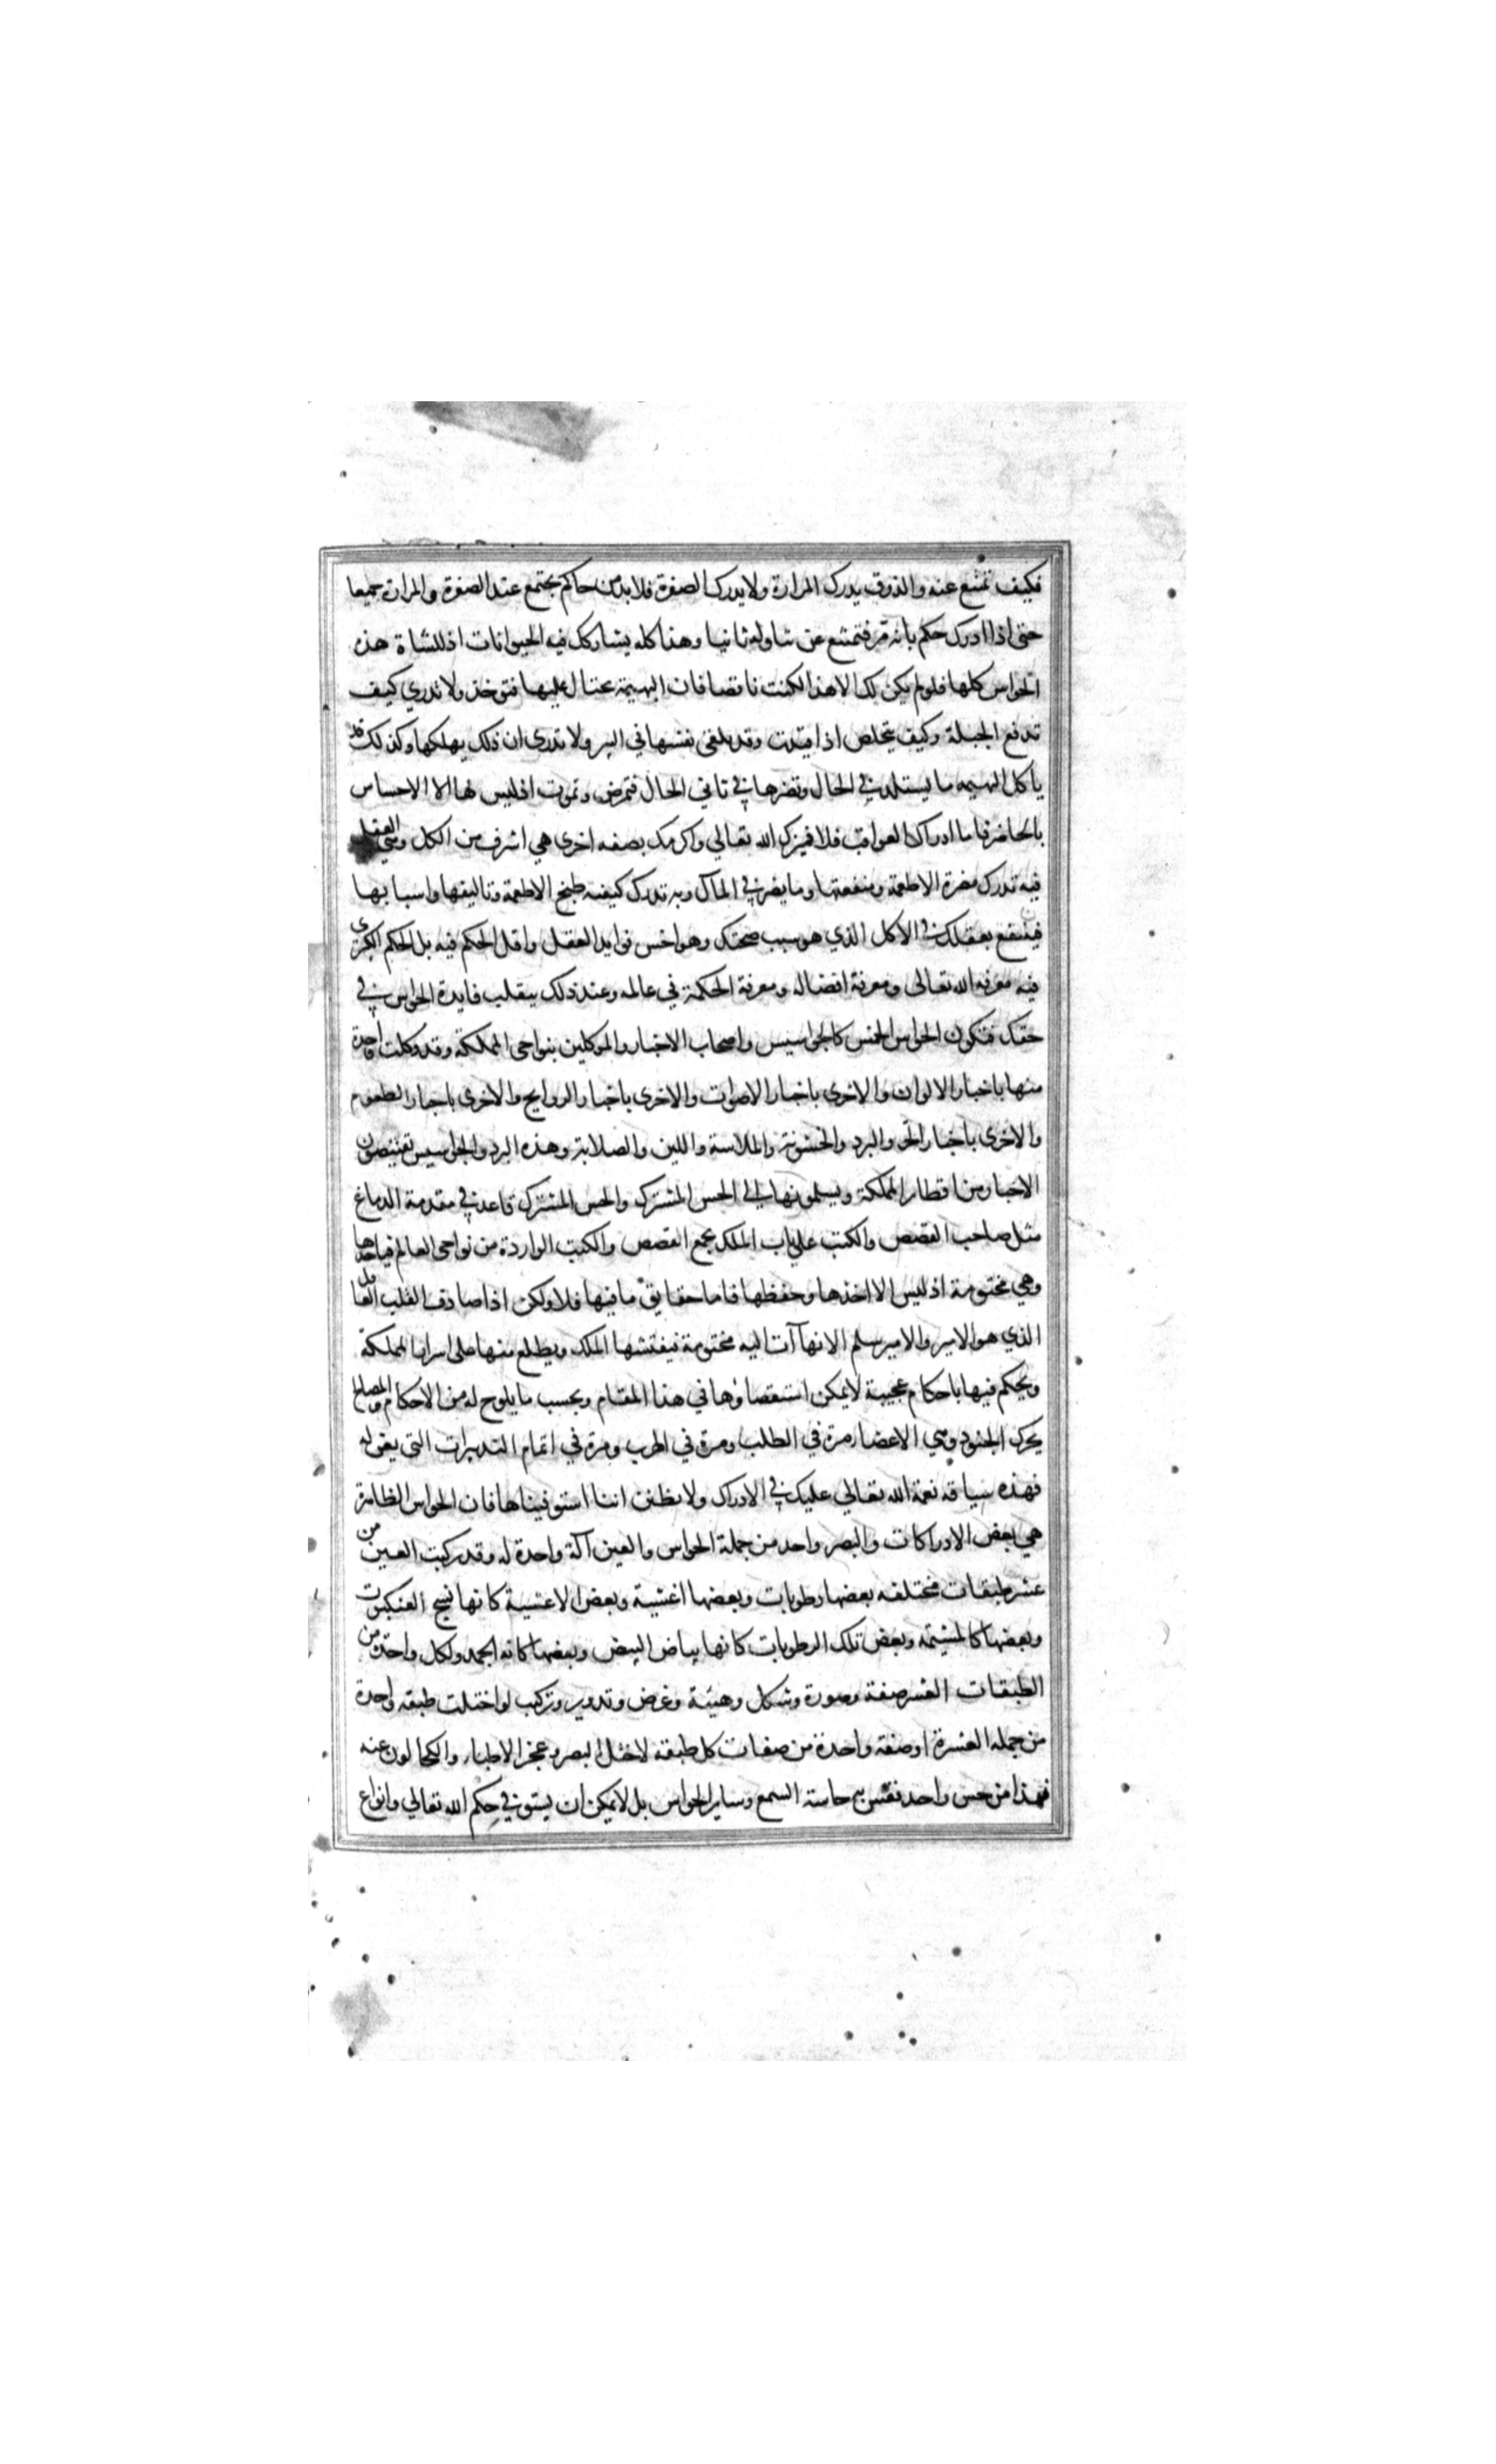 فكيف تمتنع عنه والذوق يدرك المرارة ولا يدرك الصفرة فلا بد من حاكم يجتمع عنده الصفرة والمرارة جميعا
حتى اذا ادرك حكم بانه مر فتمتنع عن تناوله ثانيا وهذا كله يشاركك فيه الحيوانات اذ للشاة هذه
الحواس كلها فلو لم يكن لك الا هذا لكنت ناقصا فان البهيمة يحتال عليها فتوخذ ولا تدري كيف
تدفع الحيلة وكيف يتخلص اذا قيدت وقد يلقى نفسها في البير ولا تدرى ان ذلك يهلكها وكذلك قد
ياكل البهيمه ما يستلذ في الحال ويضرها في ثاني الحال فتمرض وتموت اذ ليس لها الا الاحساس
بالحاضر فاما ادراك العواقب فلا فميزك الله تعالي واكرمك بصفه اخرى هي اشرف من الكل وهي العقل
فبه تدرك مضرة الاطعمة ومنفعتها وما يضر في المآل وبه تدرك كيفيه طبخ الاطعمة وتاليفها واسبابها
فينتفع بعقلك في الاكل الذي هو سبب صحتك وهو اخس فوايد العقل واقل الحكم فيه بل الحكم الكبرى
فيه معرفه الله تعالى ومعرفة افعاله ومعرفة الحكمة في عالمه وعند ذلك ينقلب فايدة الحواس في
حقك فتكون الحواس الخمس كالجواسيس واصحاب الاخبار والموكلين بنواحي المملكة وقد وكلت واحدة
منها باخبار الالوان والاخرى باخبار الاصوات والاخرى باخبار الروايح والاخرى باخبار الطعوم
والاخرى باخبار الحر والبرد والخشونة والملاسة واللين والصلابة وهذه البرد والجواسيس يقتنصون
الاخبار من اقطار المملكة ويسلمونها الى الحس المشترك والحس المشترك قاعد في مقدمة الدماغ
مثل صاحب القصص والكتب على باب الملك يجمع القصص والكتب الواردة من نواحي العالم فياخذها
وهي مختومة اذ ليس الا اخذها وحفظها فاما حقايق ما فيها فلا ولكن اذا صادف القلب العاقل
الذي هو الامير والامير سلم الانهاآت اليه مختومة فيفتشها الملك ويطلع منها على اسرار المملكة
ويحكم فيها باحكام عجيبة لا يمكن استقصاؤها في هذا المقام وبحسب ما يلوح له من الاحكام والمصالح
يحرك الجنود وهي الاعضا مرة في الطلب ومرة في الهرب ومرة في اتمام التدبيرات التي
فهذه سياقه نعمة الله تعالي عليك في الادراك ولا تظنن اننا استوفيناها فان الحواس الظاهرة
هي بعض الادراكات والبصر واحد من جملة الحواس والعين آلة واحدة له وقد ركبت العين من
عشر طبقات مختلفه بعضها رطوبات وبعضها اغشية وبعض الاغشية كانها نسج العنكبوت
وبعضها كالمشيمه وبعض تلك الرطوبات كانها بياض البيض وبعضها كانه الجمد ولكل واحدة من
الطبقات العشر صفة وصورة وشكل وهيئة وعرض وتدوير وتركيب لو اختلت طبقه واحدة
من جمله العشرة او صفة واحدة من صفات كل طبقة لاختل البصر وعجز الاطباء والكحالون عنه
فهذا من حس واحد فقس به حاسة السمع وساير الحواس بل لا يمكن ان يستوفي حكم الله تعالي وانواع